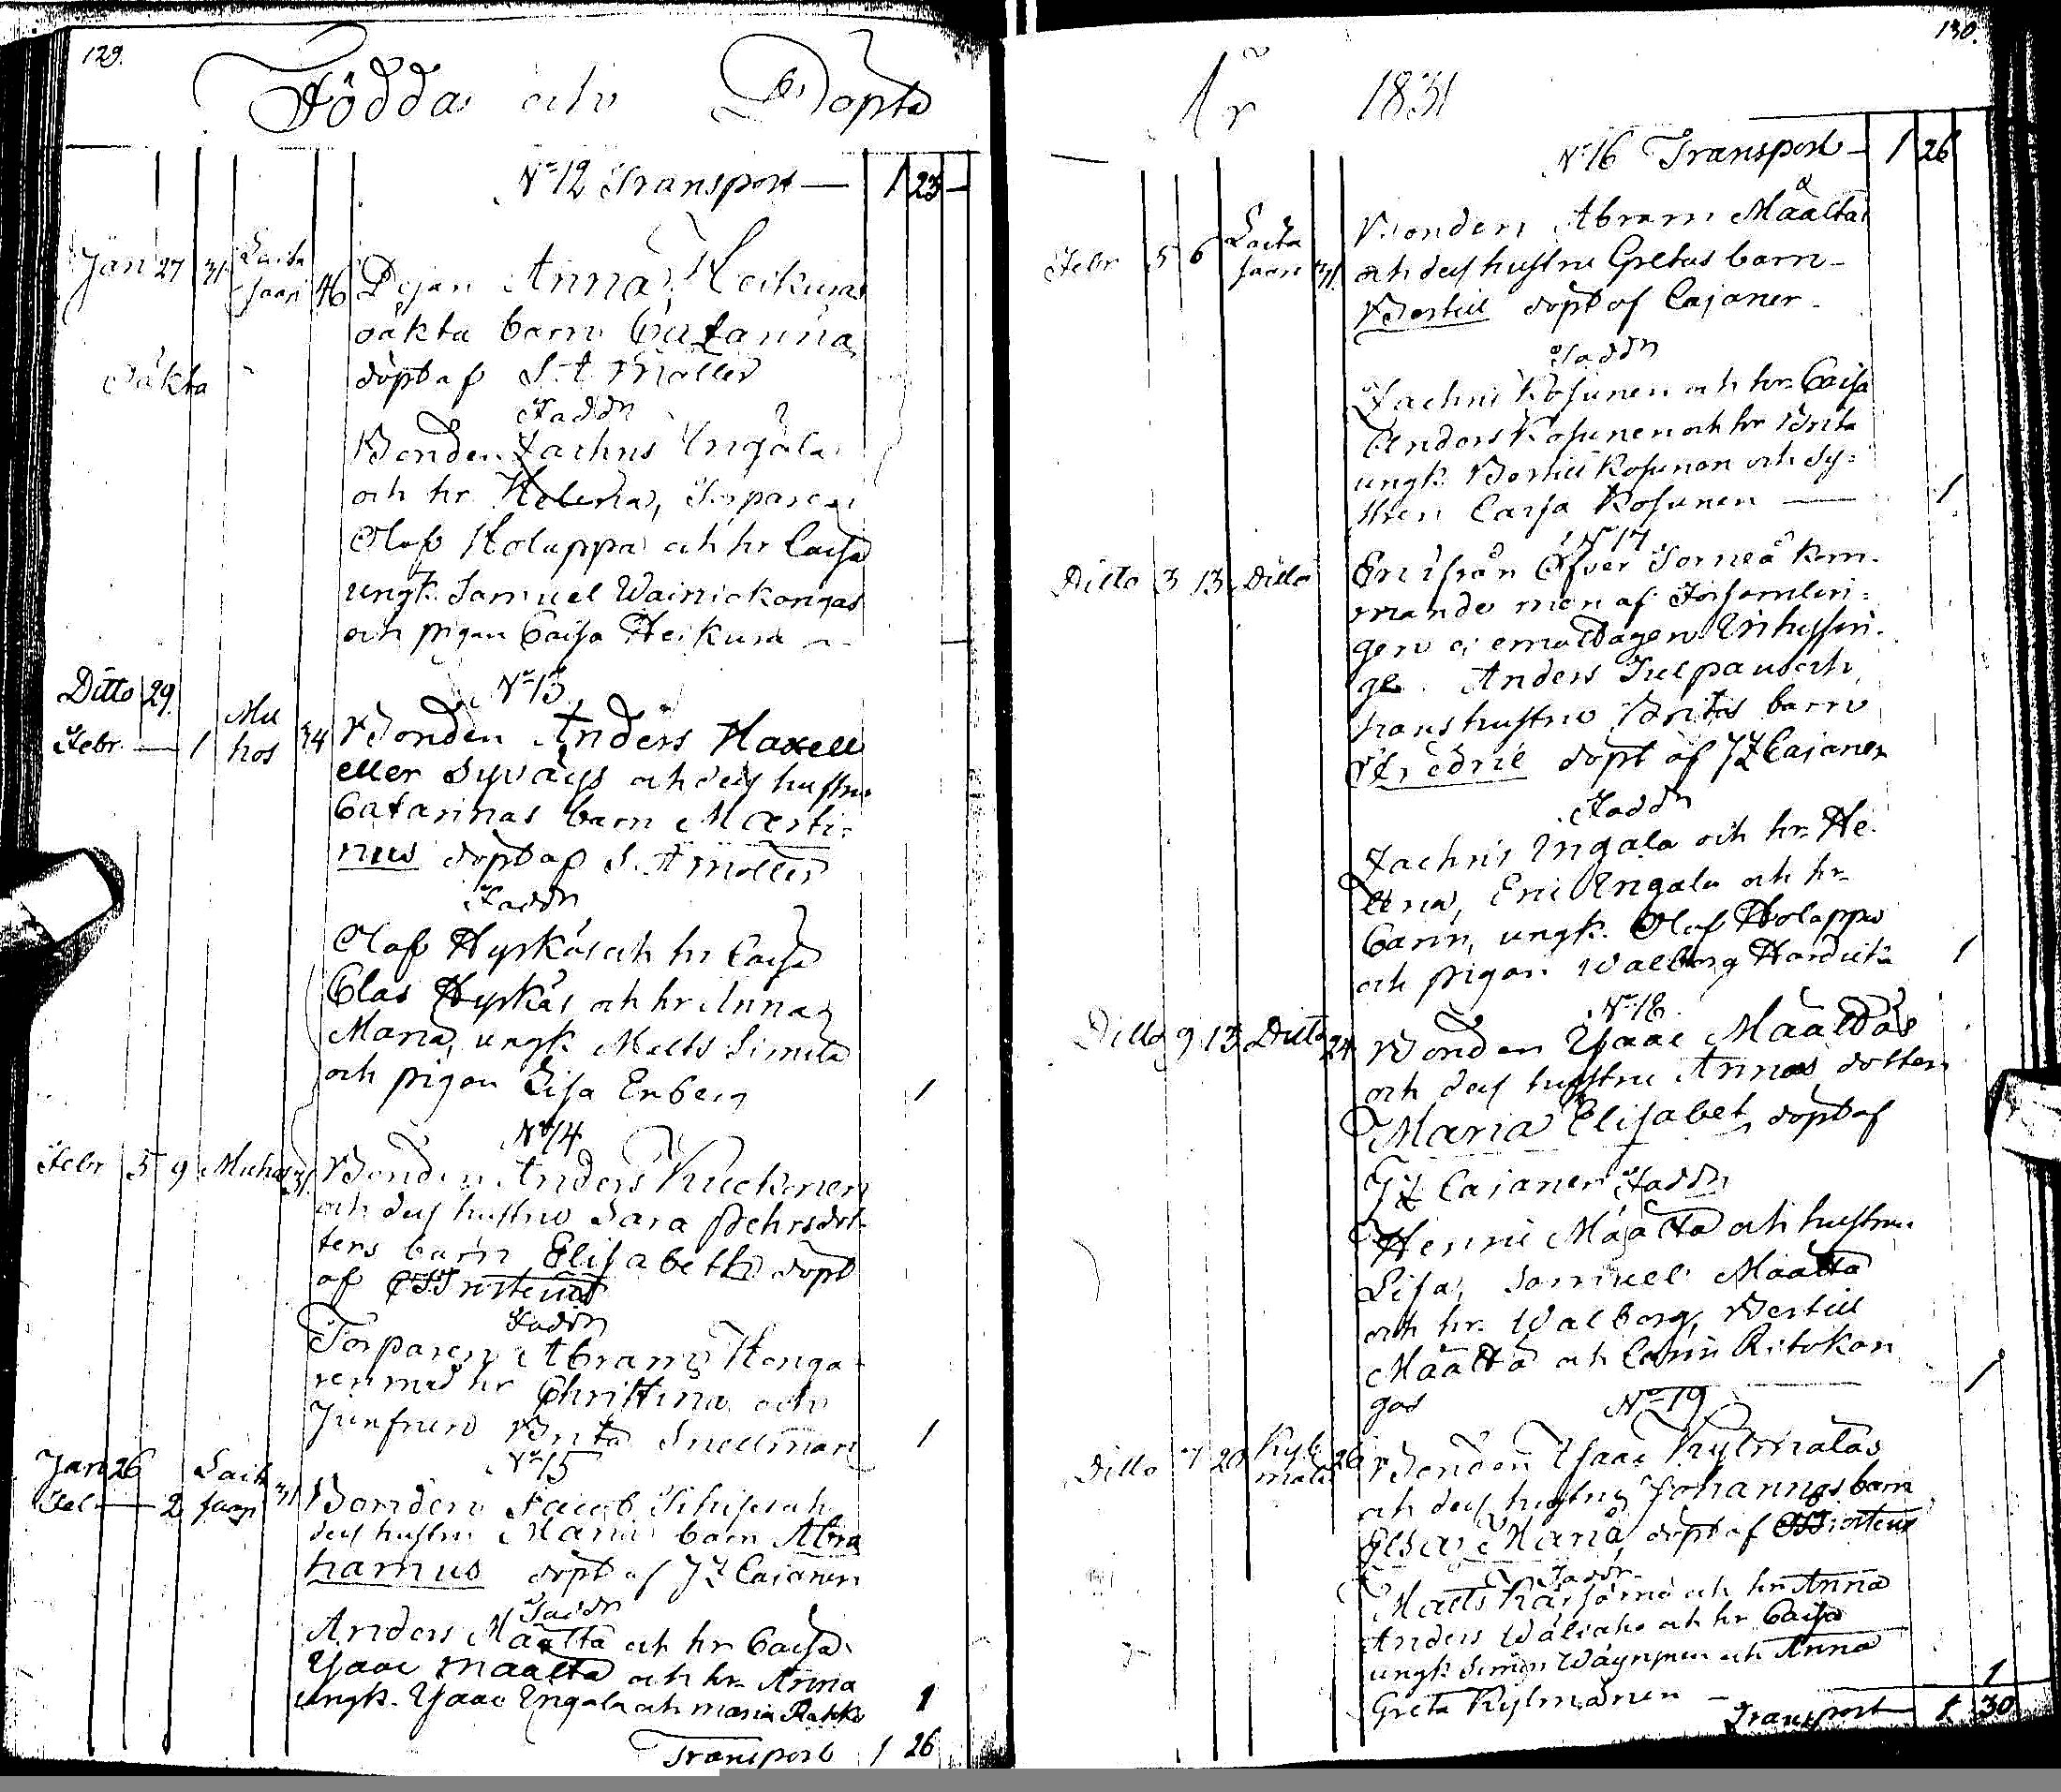 129.
Födda och Döpta
No 12 Transport — 1 23 —
Jan 27 31 Laita
saari 46 Pigan Anna Heikuras
oäkta barn Catarina
Oäkta döpt af S. A. Moller
Faddr
Bonden Zachris Ingala
och hr Helena, Torparen
Olof Holappa och hr Caisa
ungk. Samuel Wainiokangas
och pigan Caisa Heikura
No 13
Ditto 29.
Febr. — 1 Mu
hos 34 Bonden Anders Haxell
eller Syväys och dess hustru
Catarinas barn Marti-
nus döpt af S. A Moller
Faddr
Olof Hyrkäs och hr Caisa
Clas Hyrkäs och hr Anna
Maria, ungk. Matts Simila
och pigan Lisa Enberg 1
No 14
Febr 5 9 Muhos 31. Bonden Anders Kuckonen
och dess hustru Sara Pehrsdot-
ters barn Elisabeth döpt
af
Faddr
Torparen Abram Honga-
ren med hr Christina och
Junfrun Brita Snellman 1
No 15
Jan 26 Laita
Feb — 2 saari 31 Bonden Jacob och
dess hustru Maria barn Abra
hamus döpt af J Z Cajaner
Faddr
Anders Määttä och hr Caisa
Isaac Määttä och hr Anna
ungk. Isaac Ingala och Maria Rakko 1
Transport 1 26
130.
År 1831
No 16 Transport — 1 26
Febr 5 6 Laita
saari 31. Bonden Abram Määttäs
och dess hustru Gretas barn
Bertill döpt af Cajaner.
Faddr
Zachris Kosunen och hr Caisa
Anders Kosunen och hr Brita
ungk. Bertill Kosunen och Sy-
stren Caisa Kosunen — 1
No 17
Ditto 3 13 Ditto En ifrån Öfver Torneå kom-
mande men af Församlin-
gen ej emottagen Inhysin-
ge Anders och
hans hustru Britas barn
Fredric döpt af J Z Cajaner
Faddr
Zachris Ingala och hr He-
lena, Eric Ingala och hr
Carin, ungk. Olof Holappa
och pigan Walborg 1
No 18.
Ditto 9 13 Ditto 24 Bonden Isaac Määttäs
och dess hustru Annas dotter
Maria Elisabet döpt af
J Z Cajaner Faddr
Henric Määttä och hustru
Lisa, Samuel Määttä
och hr Walborg, Bertill
Määttä och Carin Ritokan
gas 1
No 19
Ditto 7 20 Kyl
mälä 26 Bonden Isaac Kylmäläs
och dess hustru Johannas barn
Elsa Maria döpt af
Faddr
Matts och hr Anna
Anders och hr Caisa
ungk Simon Wäyrynen och Anna
Greta Kylmänen — 1
Transport 1 30